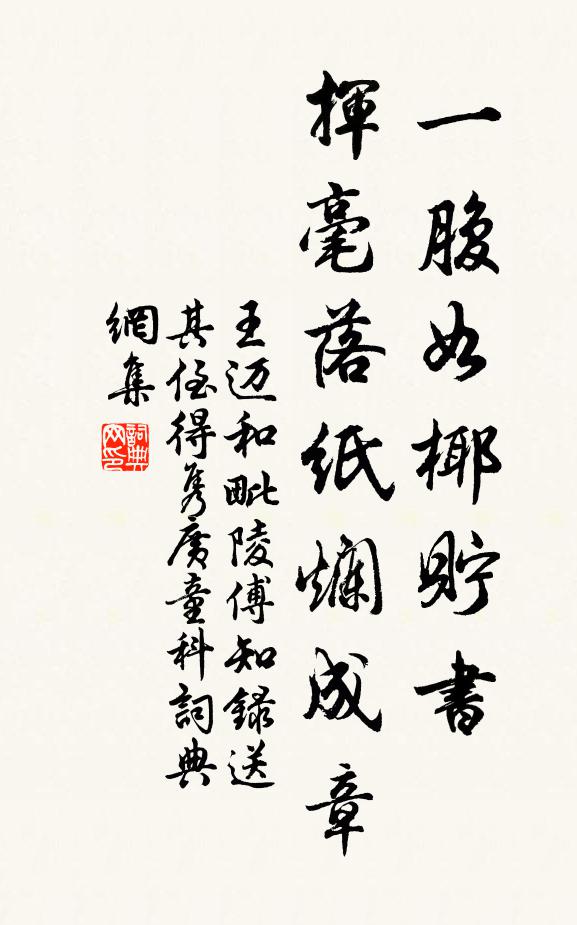 一腹如椰貯書
揮毫落紙爛成章
王迈和毗陵傅知錄送
其侄得雋廣童科詞典
網集
詞典
网印